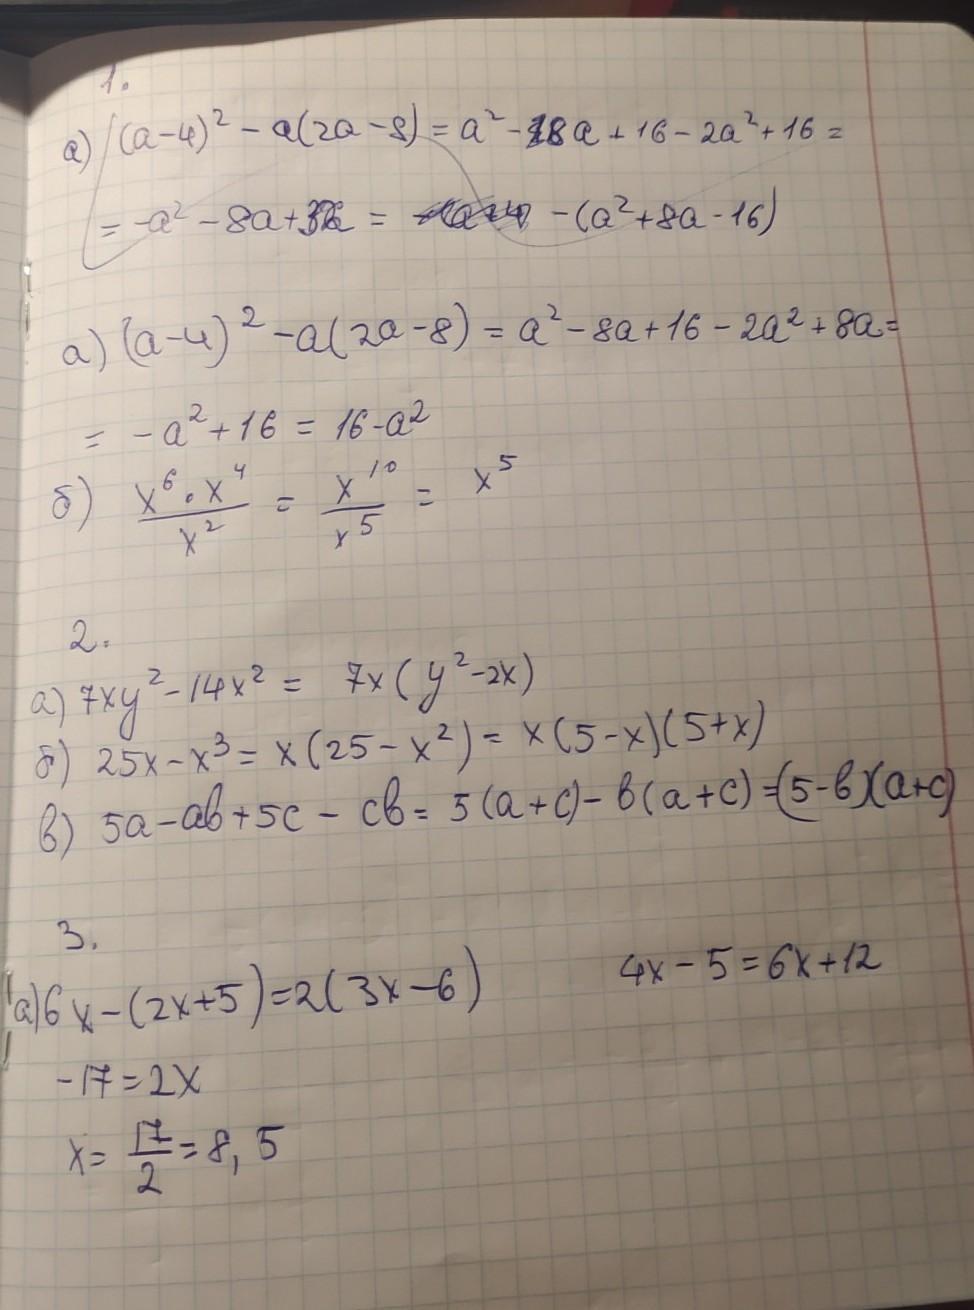 1.
а) (a-4)² - a(2a-8) = a² - 8a + 16 - 2a² + 16 =
= -a² - 8a + = -(a² + 8a - 16)
а) (a-4)² - a(2a-8) = a² - 8a + 16 - 2a² + 8a =
= -a² + 16 = 16 - a²
б) x⁶ · x⁴ / x² = x¹⁰ / x⁵ = x⁵
2.
а) 7xy² - 14x² = 7x(y² - 2x)
б) 25x - x³ = x(25 - x²) = x(5-x)(5+x)
в) 5a - ab + 5c - cb = 5(a+c) - b(a+c) = (5-b)(a+c)
3.
а) 6x - (2x+5) = 2(3x-6) 4x - 5 = 6x + 12
-17 = 2x
x = 17/2 = 8,5